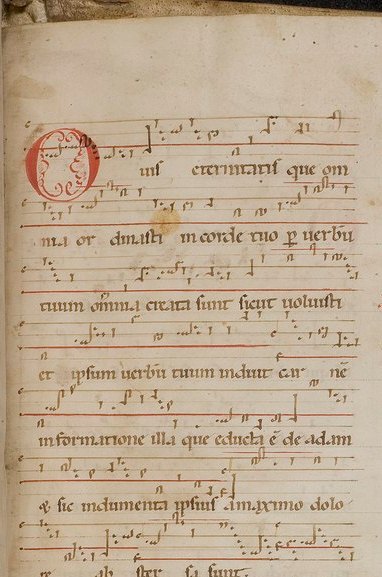 O uis eternitatis que om
nia or dinasti in corde tuo ꝑ uerbū
tuum om̄ia creata sunt sicut uoluisti
et ipsum uerbū tuum induit car nē
in formatione illa que educta ē de adam
& sic indumenta ipsius a maximo dolo
re abs ter sa sunt.